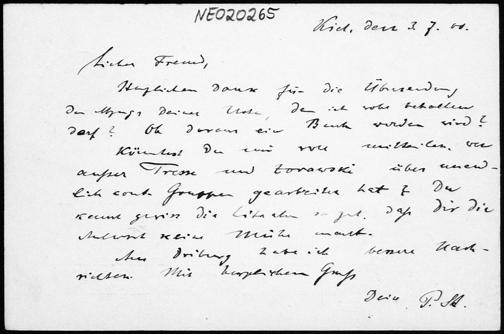 NE020265
Kiel, den 3. 7. 00.
Lieber Freund,
Herzlichen Dank für die Übersendung
des Deiner Note, den ich wohl behalten
darf? Ob daraus ein Buch werden wird?
Könntest Du mir wohl mitteilen, wer
außer Tresse und Zorawski über unend-
lich cont. Gruppen gearbeitet hat? Du
kennst gewiss die Literatur so gut, daß Dir die
Antwort keine Mühe macht.
Aus Driburg habe ich bessere Nach-
richten. Mit herzlichem Gruß
Dein P. St.